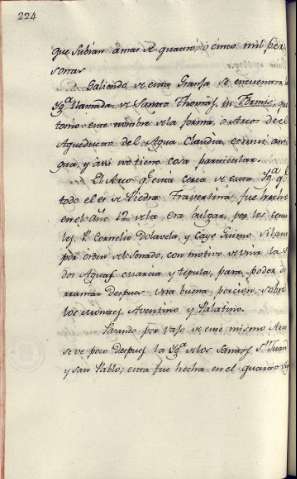 224
que subian a mas de quatro, o cinco mil per
sonas.
Saliendo de esta Granja se encuentra la
Yg.ª llamada de Santo Thomas, in Formis, que
tomó este nombre de la forma, o Arcos del
Aqueducto del Agua Claudia, es mui an
tigua, y assi no tiene cosa particular.
El Arco q.e está cerca de esta Yg.ª q.e
todo el es de Piedra Travertina, fue hecho
en el Año 12 de la era vulgar, por los Con
sules P. Cornelio Dolavela, y Cayo Junio Silano
por orden del Senado, con motivo de unir las
dos Aguas Marcia y Tepula, para poder de
rramar despues una buena porcion sobre
los montes Aventino y Palatino.
Pasando por vajo de este mismo Arco
se ve poco despues la Yg.ª de los Santos S.n Juan
y san Pablo, esta fue hecha en el quarto